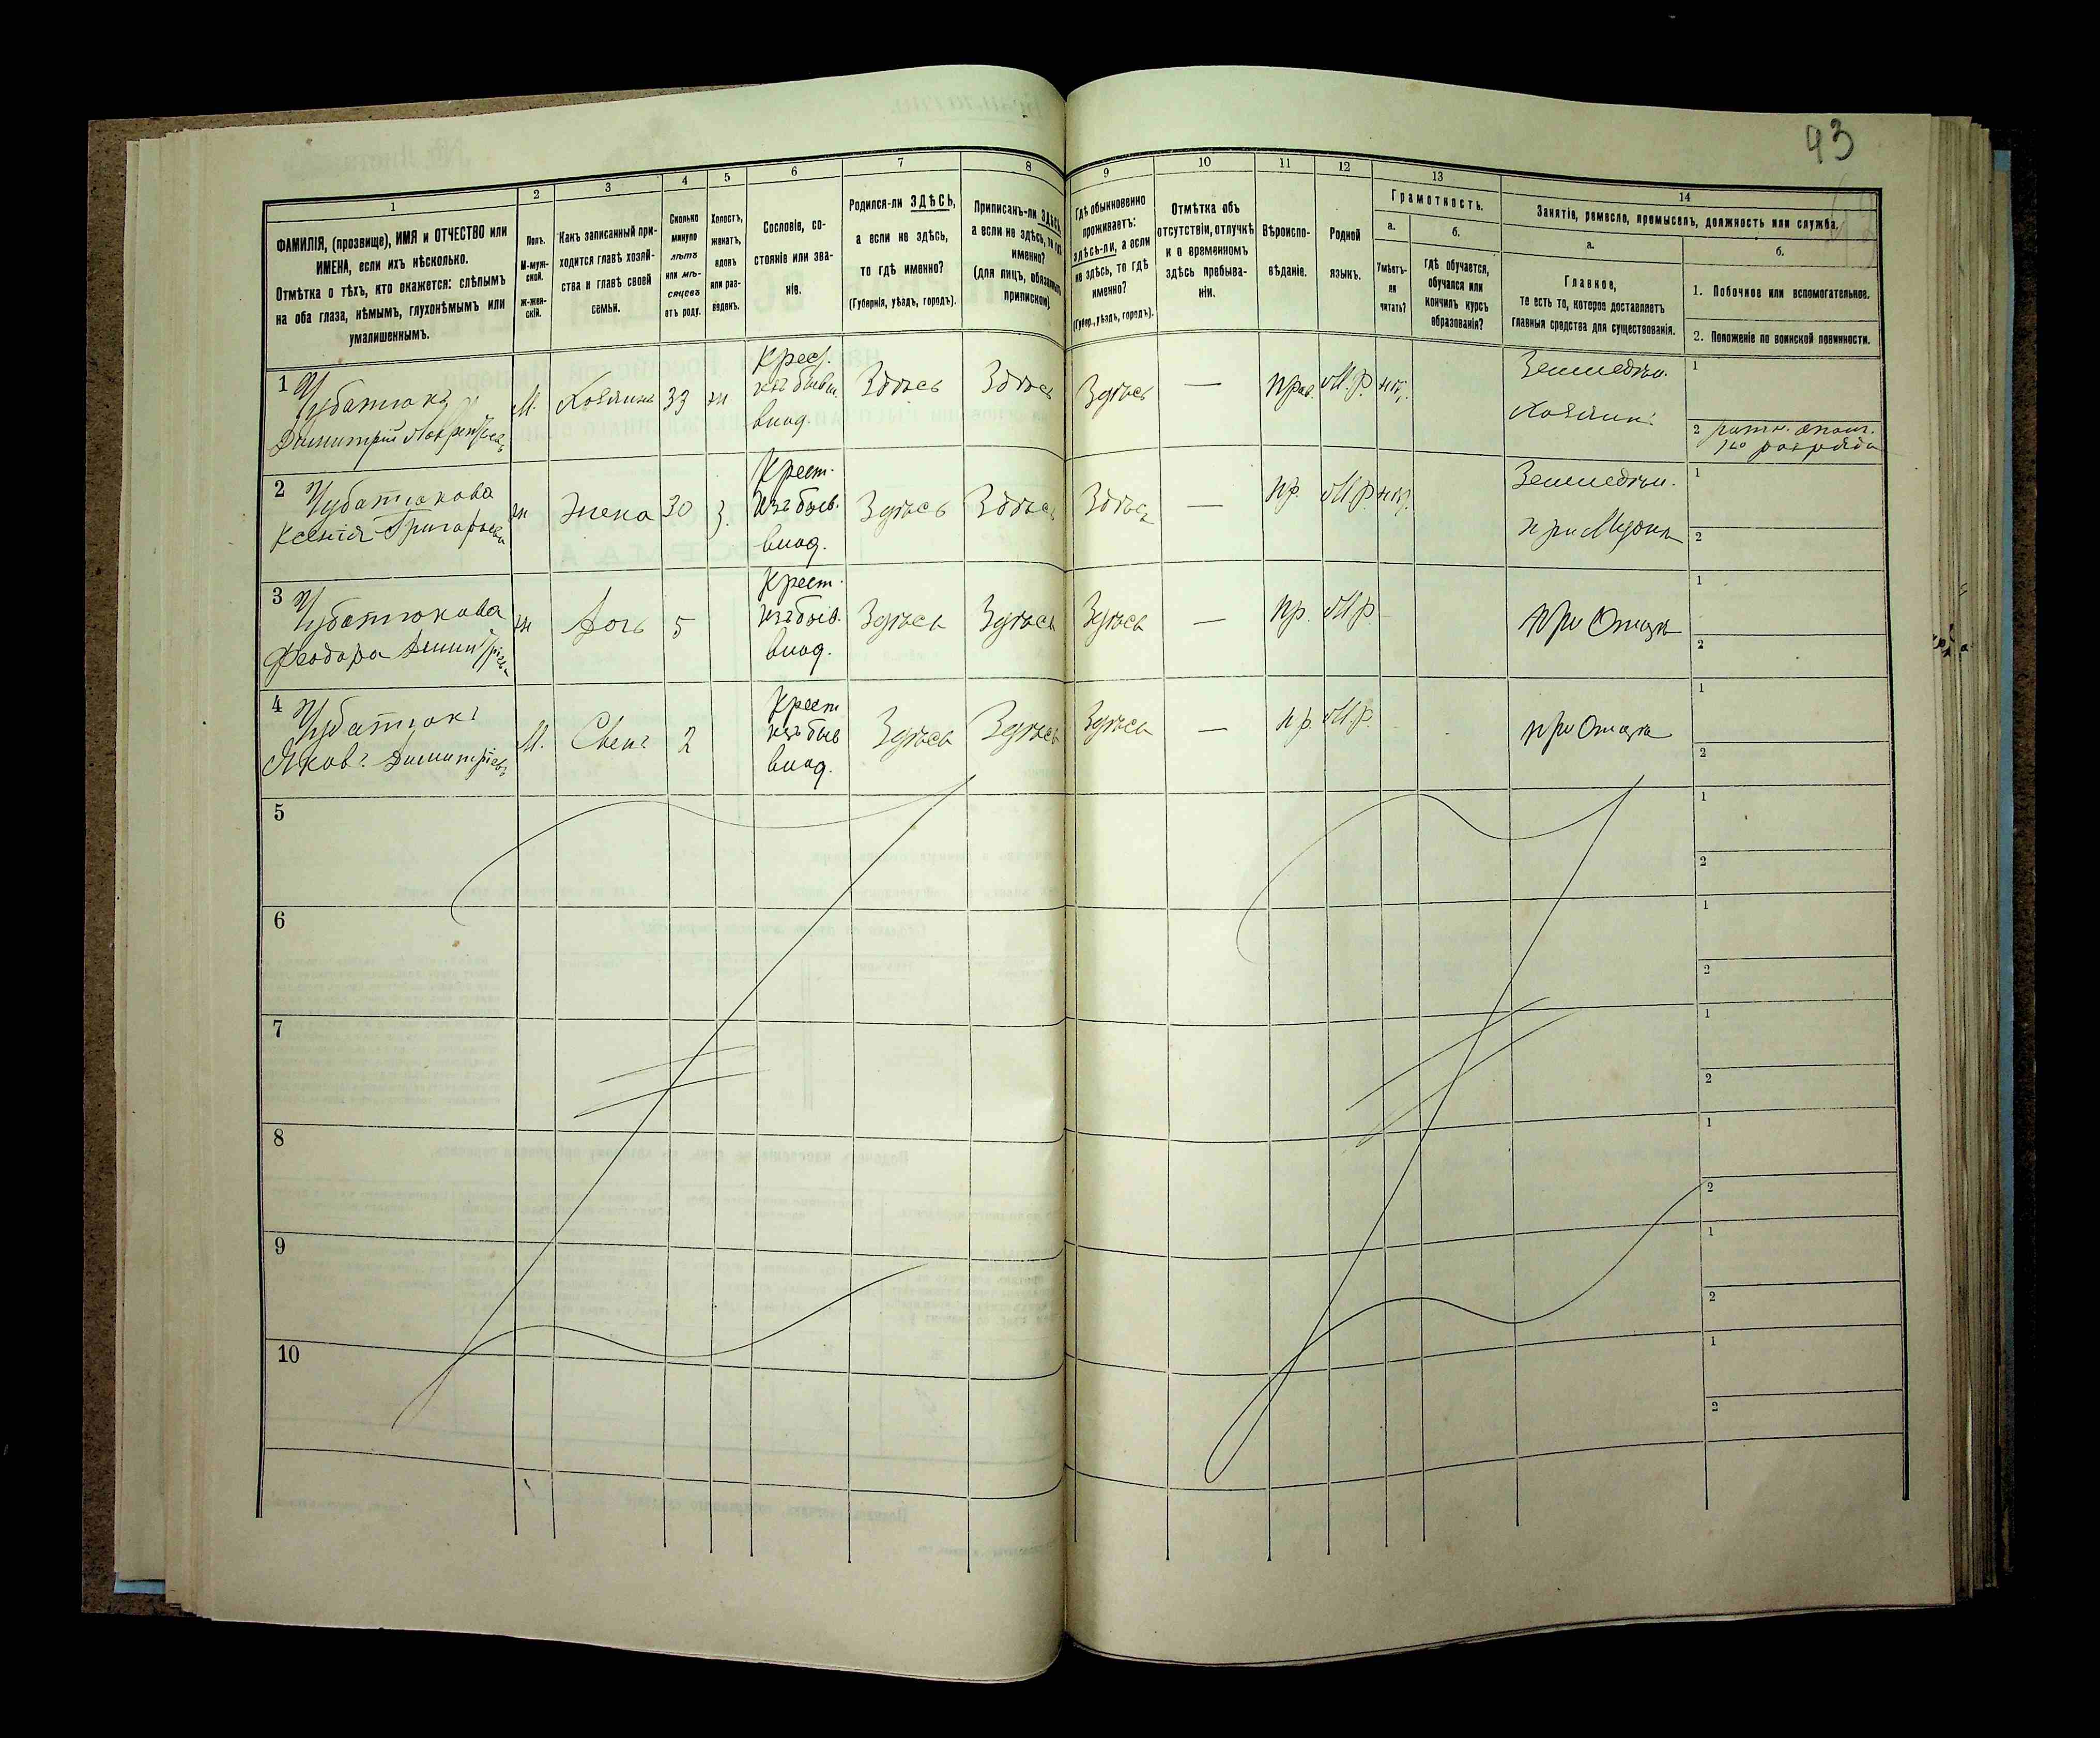 93
1 2 3 4 5 6 7 8 9 10 11 12 13 14
ФАМИЛІЯ, (прозвище), ИМЯ и ОТЧЕСТВО или
ИМЕНА, если ихъ нѣсколько.
Отмѣтка о тѣхъ, кто окажется: слѣпымъ
на оба глаза, нѣмымъ, глухонѣмымъ или
умалишеннымъ.
Полъ.
М-муж-
ской.
ж-жен-
скій.
Какъ записанный при-
ходится главѣ хозяй-
ства и главѣ своей
семьи.
Сколько
минуло
лѣтъ
или мѣ-
сяцевъ
отъ роду.
Холостъ,
женатъ,
вдовъ
или раз-
веденъ.
Сословіе, со-
стояніе или зва-
ніе.
Родился-ли ЗДѢСЬ,
а если не здѣсь,
то гдѣ именно?
(Губернія, уѣздъ, городъ).
Приписанъ-ли ЗДѢСЬ,
а если не здѣсь, то гдѣ
именно?
(для лицъ, обязанныхъ
припискою)
Гдѣ обыкновенно
проживаетъ:
здѣсь-ли, а если
не здѣсь, то гдѣ
именно?
(Губер., уѣздъ, городъ).
Отмѣтка объ
отсутствіи, отлучкѣ
и о временномъ
здѣсь пребыва-
ніи.
Вѣроиспо-
вѣданіе.
Родной
языкъ.
Грамотность.
а.
Умѣетъ-
ли
читать?
б.
гдѣ обучается,
обучался или
кончилъ курсъ
образованія?
Занятіе, ремесло, промыселъ, должность или служба.
а.
Главное,
то есть то, которое доставляетъ
главныя средства для существованія.
б.
1. Побочное или вспомогательное.
2. Положеніе по воинской повинности.
1 Чубатюкъ
Димитрій Лаврентьевъ
М. Хозяинъ 33 ж
Крест.
изъ бывш.
влад.
Здѣсь Здѣсь Здѣсь — прав. М.р. нѣт.
Земледѣл.
Хозяинъ
1
2 ратн. опол.
1го разряда
2 Чубатюкова
Ксенія Григорьева
ж Жена 30 З.
Крест.
изъ бывш.
влад.
Здѣсь Здѣсь Здѣсь — пр. М.р. нѣт.
Земледѣл.
при Мужѣ
1
2
3 Чубатюкова
Феодора Димитріева
ж Дочь 5
Крест.
изъ быв.
влад.
Здѣсь Здѣсь Здѣсь — пр. М.р. –
при Отцѣ
1
2
4 Чубатюкъ
Яковъ Димитріевъ
М. Сынъ 2
Крест
изъ быв
влад.
Здѣсь Здѣсь Здѣсь — пр. М.р.
при Отцѣ
1
2
5
1
2
6
1
2
7
1
2
8
1
2
9
1
2
10
1
2